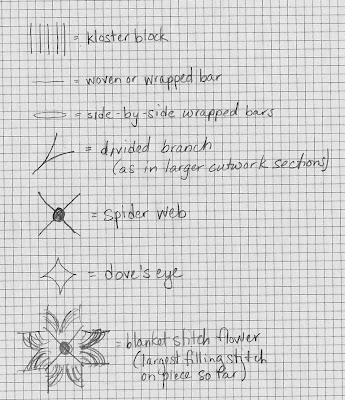 = kloster block
= woven or wrapped bar
= side-by-side wrapped bars
= divided branch
(as in larger cutwork sections)
= spider web
= dove's eye
= blanket stitch flower
(largest filling stitch
on piece so far)